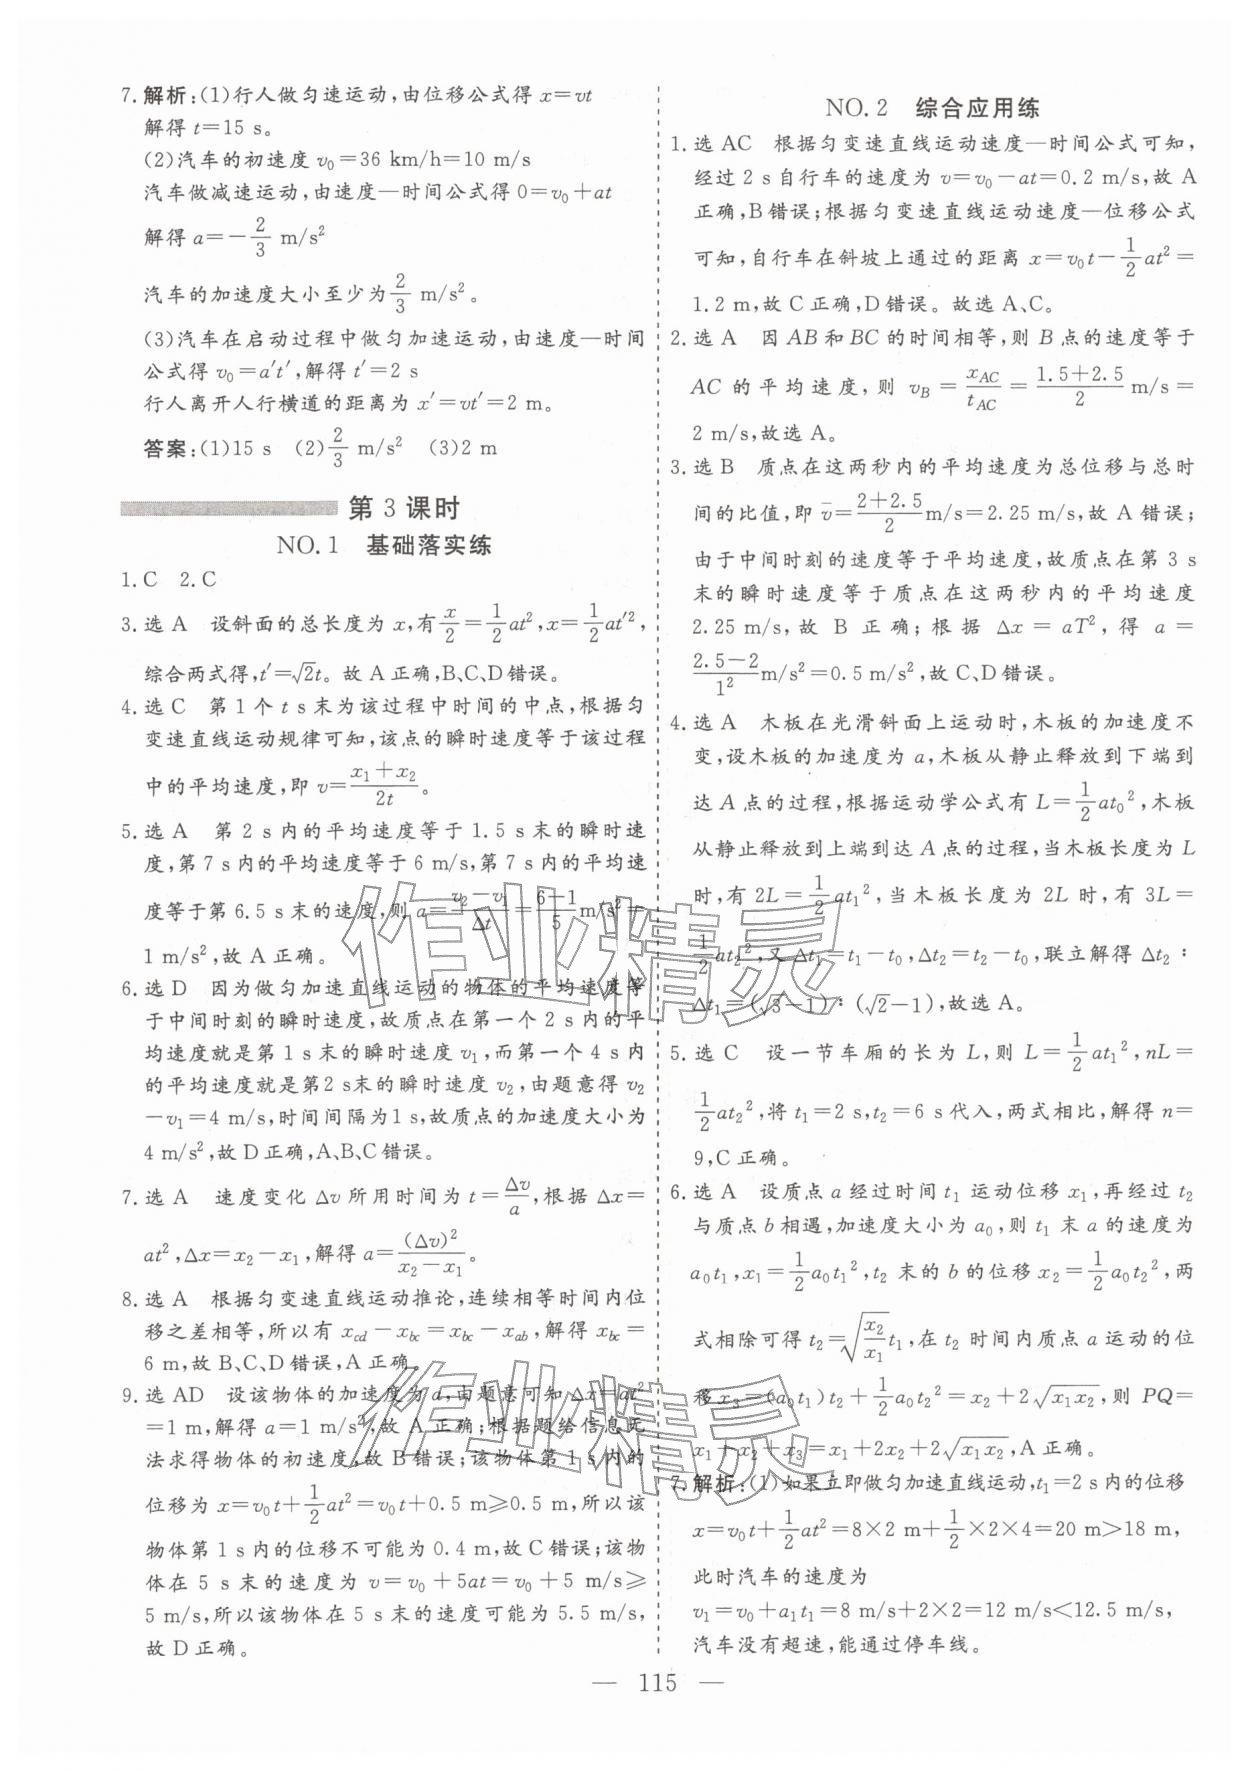 7. 解析:(1)行人做匀速运动,由位移公式得 x=vt
解得 t=15 s。
(2)汽车的初速度 v₀=36 km/h=10 m/s
汽车做减速运动,由速度—时间公式得 0=v₀+at
解得 a=-2/3 m/s²
汽车的加速度大小至少为 2/3 m/s²。
(3)汽车在启动过程中做匀加速运动,由速度—时间
公式得 v₀=a′t′,解得 t′=2 s
行人离开人行横道的距离为 x′=vt′=2 m。
答案:(1)15 s (2)2/3 m/s² (3)2 m
第 3 课时
NO.1 基础落实练
1.C 2.C
3.选 A 设斜面的总长度为 x,有 x/2=1/2 at²,x=1/2 at′²,
综合两式得,t′=√2t。故 A 正确,B、C、D 错误。
4.选 C 第 1 个 t s 末为该过程中时间的中点,根据匀
变速直线运动规律可知,该点的瞬时速度等于该过程
中的平均速度,即 v=(x₁+x₂)/2t。
5.选 A 第 2 s 内的平均速度等于 1.5 s 末的瞬时速
度,第 7 s 内的平均速度等于 6 m/s,第 7 s 内的平均速
度等于第 6.5 s 末的速度,则 a=(v₂-v₁)/Δt=(6-1)/5 m/s²=
1 m/s²,故 A 正确。
6.选 D 因为做匀加速直线运动的物体的平均速度等
于中间时刻的瞬时速度,故质点在第一个 2 s 内的平
均速度就是第 1 s 末的瞬时速度 v₁,而第一个 4 s 内
的平均速度就是第 2 s 末的瞬时速度 v₂,由题意得 v₂
-v₁=4 m/s,时间间隔为 1 s,故质点的加速度大小为
4 m/s²,故 D 正确,A、B、C 错误。
7.选 A 速度变化 Δv 所用时间为 t=Δv/a,根据 Δx=
at²,Δx=x₂-x₁,解得 a=(Δv)²/(x₂-x₁)。
8.选 A 根据匀变速直线运动推论,连续相等时间内位
移之差相等,所以有 x_cd-x_bc=x_bc-x_ab,解得 x_bc=
6 m,故 B、C、D 错误,A 正确。
9.选 AD 设该物体的加速度为 a,由题意可知 Δx=at²
=1 m,解得 a=1 m/s²,故 A 正确;根据题给信息无
法求得物体的初速度,故 B 错误;该物体第 1 s 内的
位移为 x=v₀t+1/2 at²=v₀t+0.5 m≥0.5 m,所以该
物体第 1 s 内的位移不可能为 0.4 m,故 C 错误;该物
体在 5 s 末的速度为 v=v₀+5at=v₀+5 m/s≥
5 m/s,所以该物体在 5 s 末的速度可能为 5.5 m/s,
故 D 正确。
NO.2 综合应用练
1.选 AC 根据匀变速直线运动速度—时间公式可知,
经过 2 s 自行车的速度为 v=v₀-at=0.2 m/s,故 A
正确,B 错误;根据匀变速直线运动速度—位移公式
可知,自行车在斜坡上通过的距离 x=v₀t-1/2 at²=
1.2 m,故 C 正确,D 错误。故选 A、C。
2.选 A 因 AB 和 BC 的时间相等,则 B 点的速度等于
AC 的平均速度,则 v_B=x_AC/t_AC=(1.5+2.5)/2 m/s=
2 m/s,故选 A。
3.选 B 质点在这两秒内的平均速度为总位移与总时
间的比值,即 v̄=(2+2.5)/2 m/s=2.25 m/s,故 A 错误;
由于中间时刻的速度等于平均速度,故质点在第 3 s
末的瞬时速度等于质点在这两秒内的平均速度
2.25 m/s,故 B 正确;根据 Δx=aT²,得 a=
(2.5-2)/1² m/s²=0.5 m/s²,故 C、D 错误。
4.选 A 木板在光滑斜面上运动时,木板的加速度不
变,设木板的加速度为 a,木板从静止释放到下端到
达 A 点的过程,根据运动学公式有 L=1/2 at₀²,木板
从静止释放到上端到达 A 点的过程,当木板长度为 L
时,有 2L=1/2 at₁²,当木板长度为 2L 时,有 3L=
1/2 at₂²,又 Δt₁=t₁-t₀,Δt₂=t₂-t₀,联立解得 Δt₂:
Δt₁=(√3-1):(√2-1),故选 A。
5.选 C 设一节车厢的长为 L,则 L=1/2 at₁²,nL=
1/2 at₂²,将 t₁=2 s,t₂=6 s 代入,两式相比,解得 n=
9,C 正确。
6.选 A 设质点 a 经过时间 t₁ 运动位移 x₁,再经过 t₂
与质点 b 相遇,加速度大小为 a₀,则 t₁ 末 a 的速度为
a₀t₁,x₁=1/2 a₀t₁²,t₂ 末的 b 的位移 x₂=1/2 a₀t₂²,两
式相除可得 t₂=√(x₂/x₁) t₁,在 t₂ 时间内质点 a 运动的位
移 x₃=(a₀t₁)t₂+1/2 a₀t₂²=x₂+2√(x₁x₂),则 PQ=
x₁+x₂+x₃=x₁+2x₂+2√(x₁x₂),A 正确。
7.解析:(1)如果立即做匀加速直线运动,t₁=2 s 内的位移
x=v₀t+1/2 at²=8×2 m+1/2×2×4=20 m>18 m,
此时汽车的速度为
v₁=v₀+a₁t₁=8 m/s+2×2=12 m/s<12.5 m/s,
汽车没有超速,能通过停车线。
— 115 —
作业精灵
作业精灵